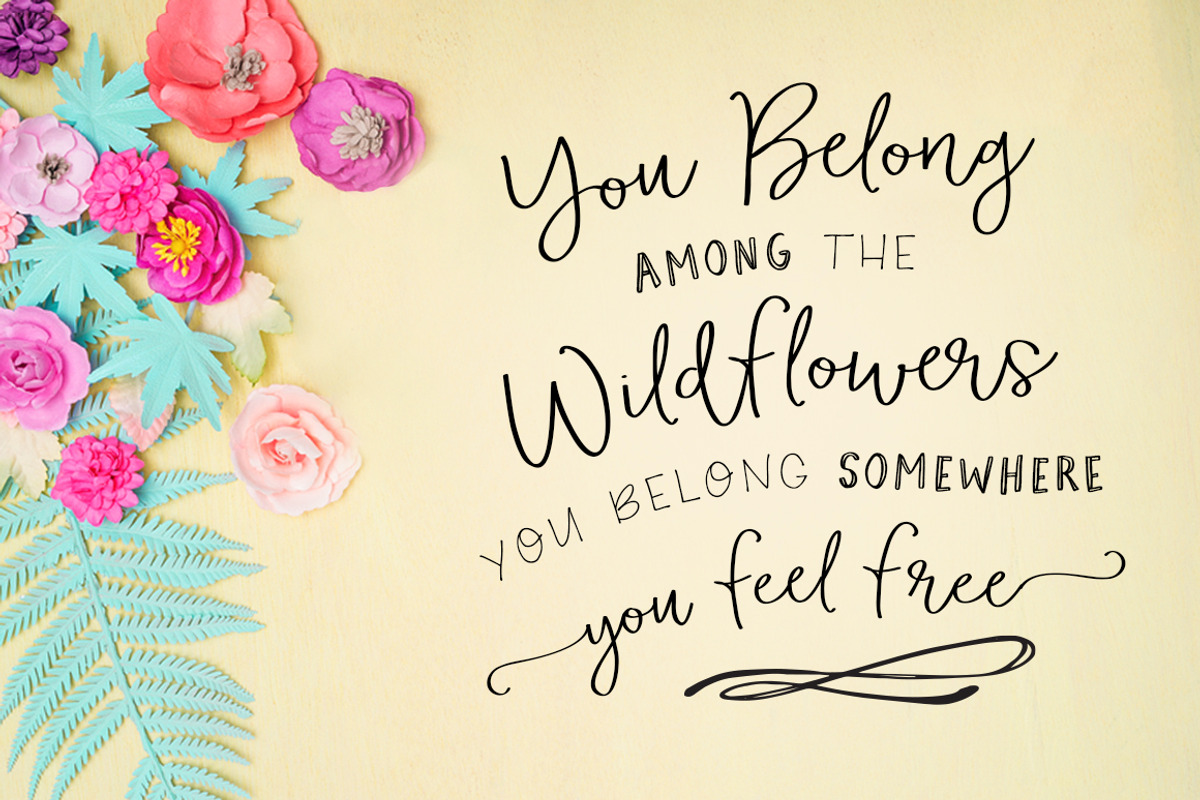 You Belong
AMONG THE
Wildflowers
YOU BELONG SOMEWHERE
you feel free